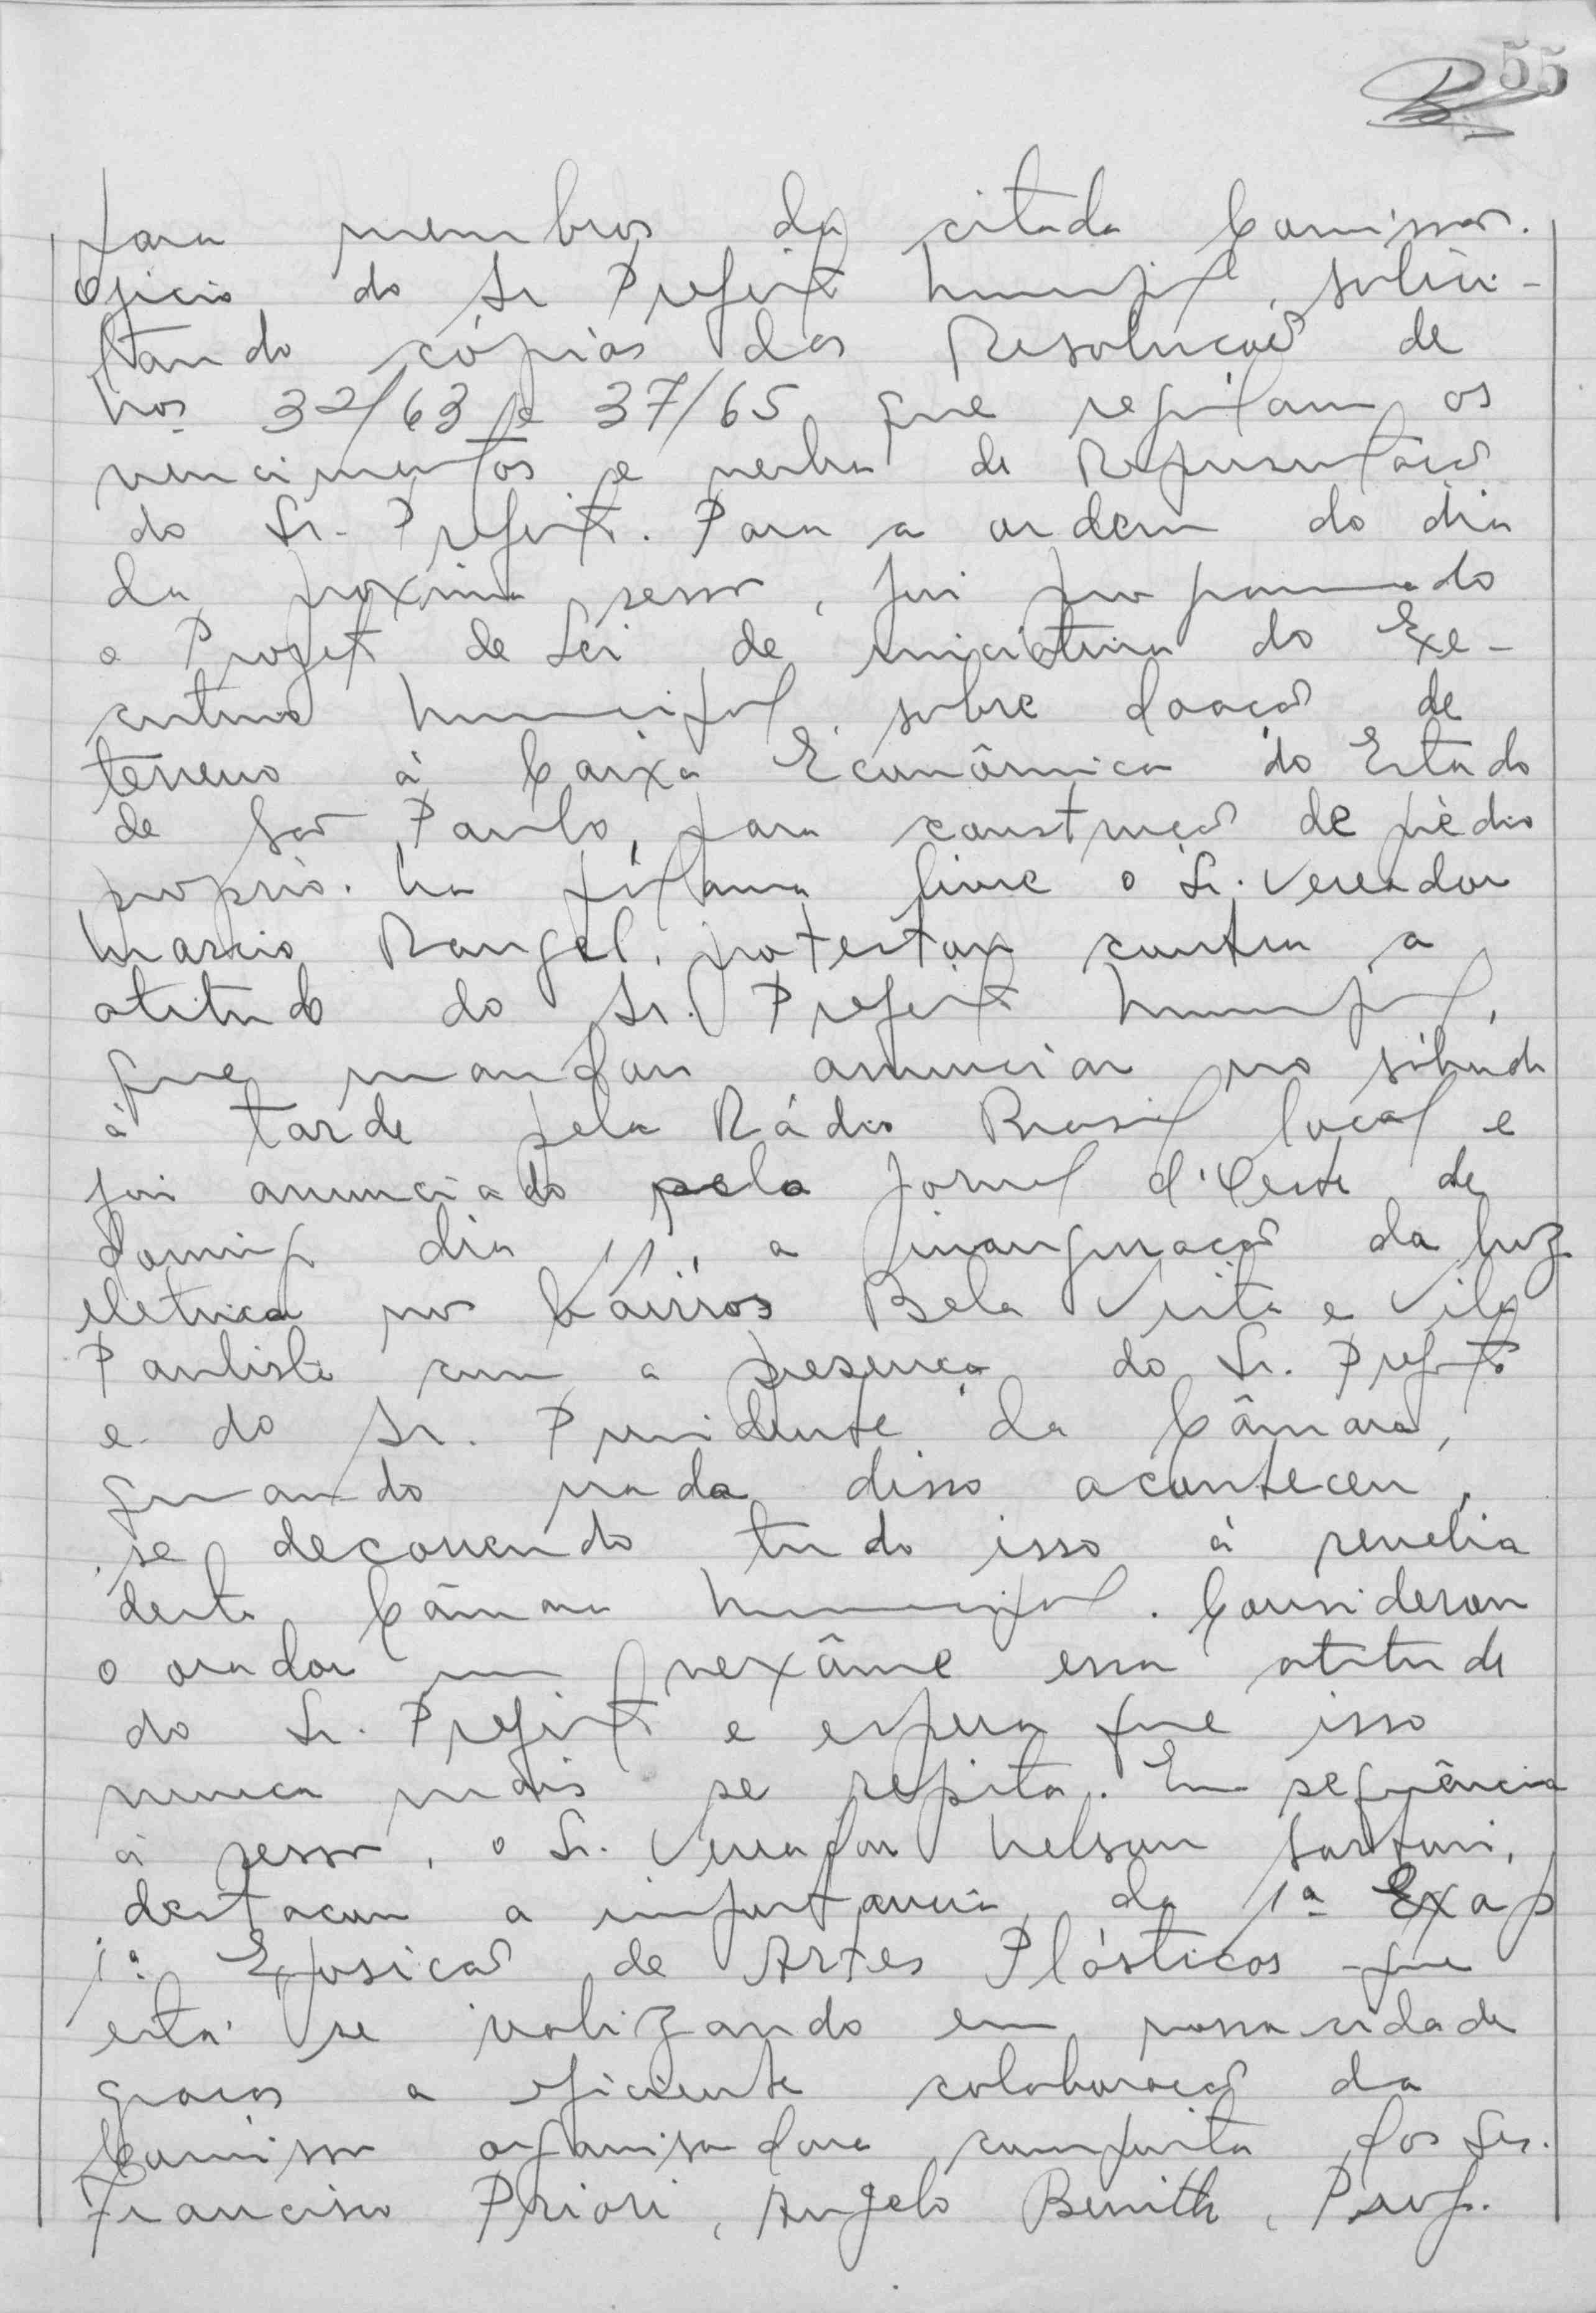 55
para membros da citada Comissão.
Oficio do Sr Prefeito Municipal, solici-
tando cópias das Resolução de
nos 32/63 e 37/65 que regulam os
vencimentos e verba de Representação
do Sr. Prefeito. Para a ordem do dia
da proxima sessão, foi programado
o Projeto de Lei de iniciativa do Exe-
cutivo Municipal, sobre doação de
terreno à Caixa Econômica do Estado
de São Paulo, para construção de prédio
proprio. Na tribuna livre o Sr. Vereador
Marcio Rangel, protestou contra a
atitude do Sr. Prefeito Municipal,
que mandou anunciar no sábado
à tarde pela Rádio Brasil local e
foi anunciado pelo Jornal d'Oeste de
domingo dia 11, a inauguração da luz
eletrica nos bairros Bela Vista e Vila
Paulista com a presença do Sr. Prefeito
e do Sr. Presidente da Câmara,
quando nada disso aconteceu,
se decorrendo tudo isso à revelia
desta Câmara Municipal. Considerou
o orador um vexâme essa atitude
do Sr. Prefeito e espera que isso
nunca mais se repita. Em sequência
à sessão, o Sr. Vereador Nelson Sartori,
destacou a importancia da 1ª Exap
1ª Exposição de Artes Plásticas que
está se realizando em nossa cidade
graças a eficiente colaboração da
Comissão organisadora composta dos Srs.
Francisco Priori, Angelo Benith, Prof.